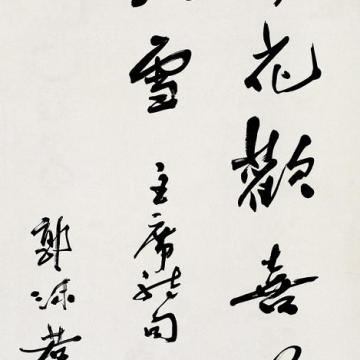 花歡喜
雪 主席詩句
郭沫若